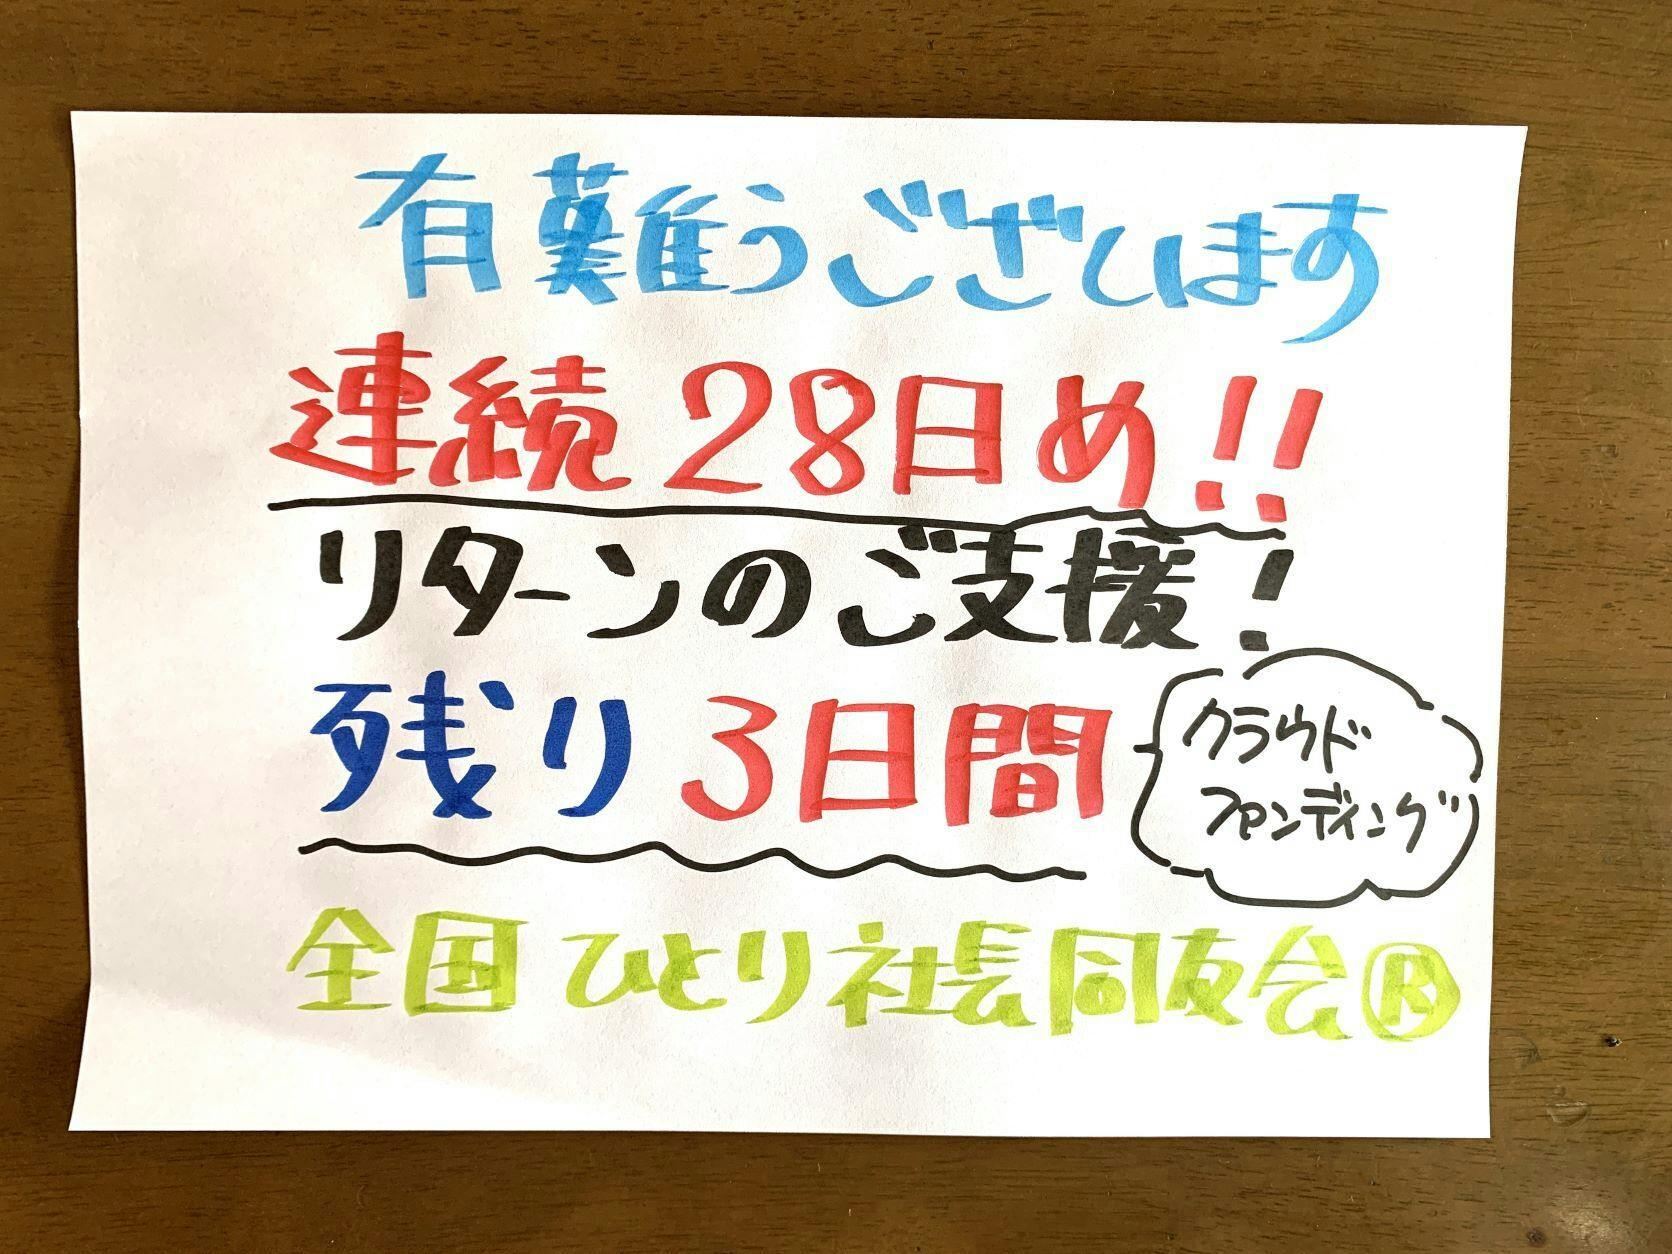 有難うございます
連続28日め!!
リターンのご支援!
残り3日間
クラウド
ファンディング
全国ひとり社長同友会®